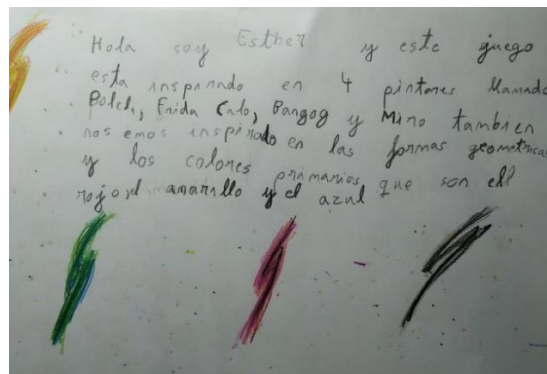 Hola soy Esther y este juego
esta inspirado en 4 pintores llamado
Polck, Frida Calo, Bangog y Miro tambien
nos emos inspirado en las formas geometricas
y los colores primarios que son ell
rojo el amarillo y el azul